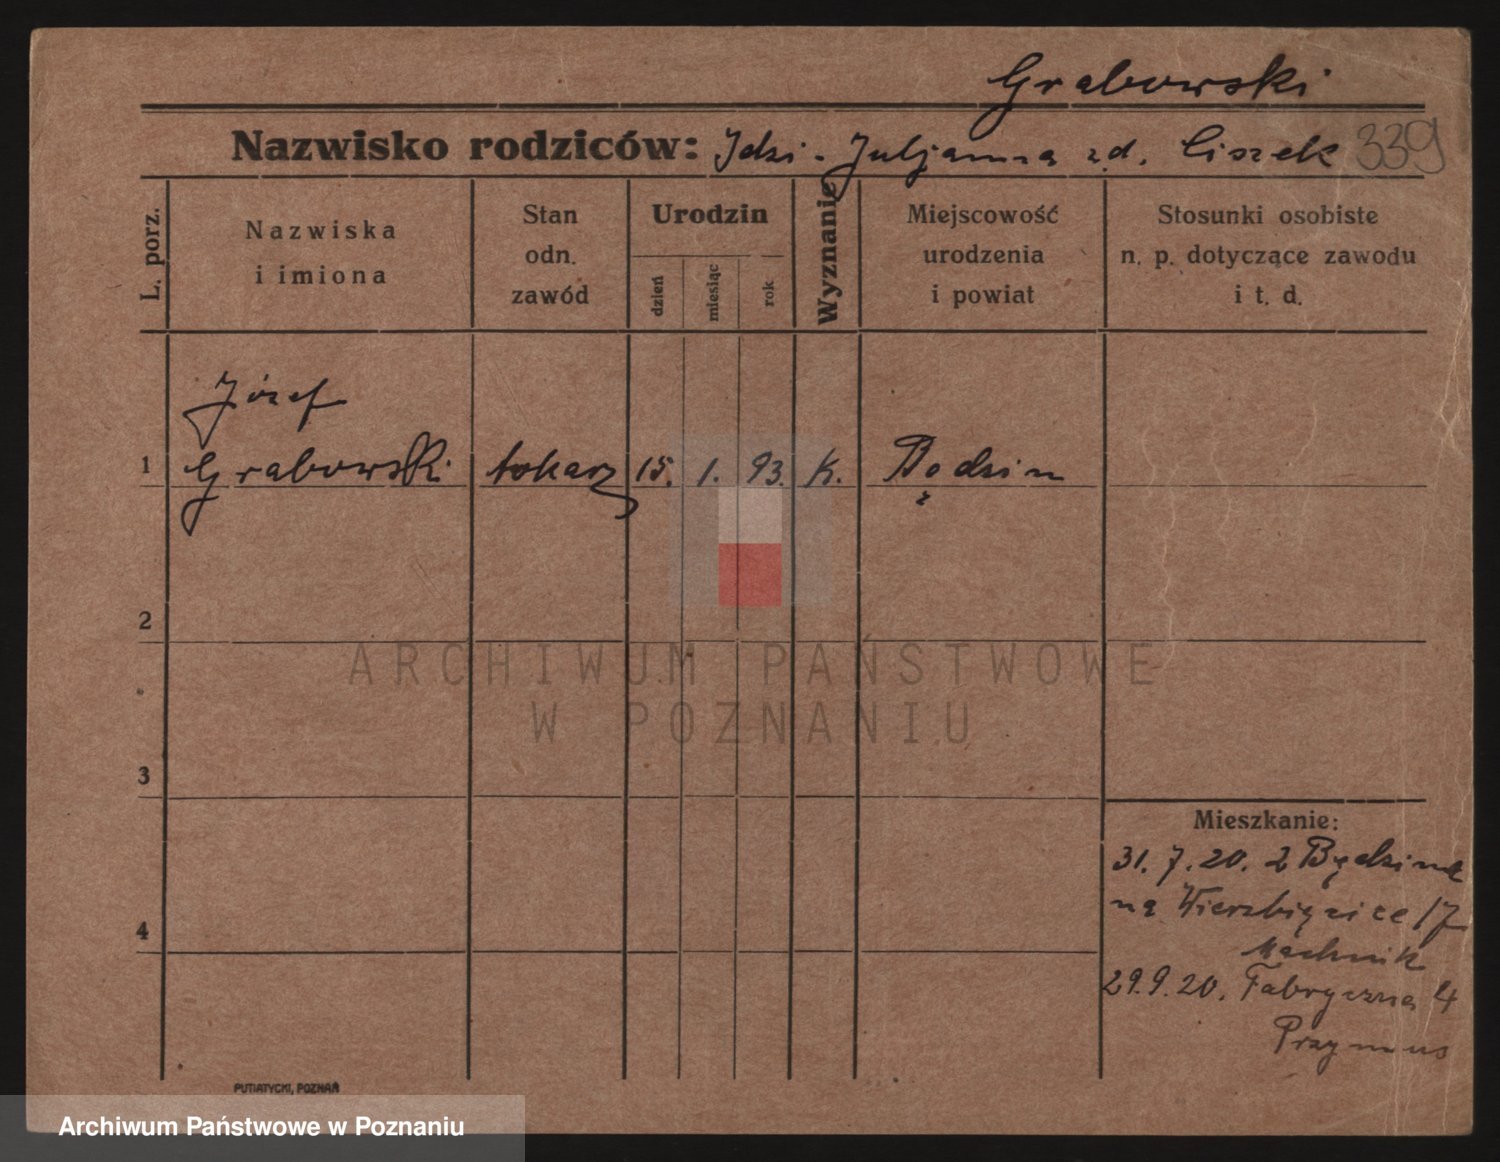 Grabowski
Nazwisko rodziców: Idzi - Juljanna zd. Ciszek 339
L. porz.
Nazwiska
i imiona
Stan
odn.
zawód
Urodzin
dzień
miesiąc
rok
Wyznanie
Miejscowość
urodzenia
i powiat
Stosunki osobiste
n. p. dotyczące zawodu
i t. d.
Józef
1 Grabowski tokarz 15. 1. 93. K. Bodzin
2
ARCHIWUM PAŃSTWOWE
W POZNANIU
3
Mieszkanie:
31. 7. 20. z Będzina
na Wierzbięcice 17
4
Machnik
29. 9. 20. Fabryczna 4
Przymus
PUTIATYCKI, POZNAŃ
Archiwum Państwowe w Poznaniu